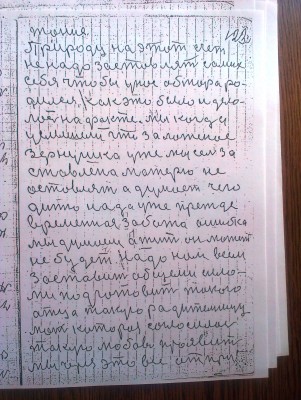 тоше
Природу на этот счет
не надо заставлят самих
себя чтобы уное обтора ро-
дился, как это было и дело-
лот на факте. мы когда
услышели что заложеное
зернушка уже мы сем за
ставлена матерю не
оставлят а думает чего
дито нада уже прежде
временная забота ошибка
мы думаем а тит он может
не будет. Надо нам всем
заставит общеми сило-
ми подготовит такого
атца такую радителницу
мат которая согосилас
такую любовь проявит
мы чрез это все